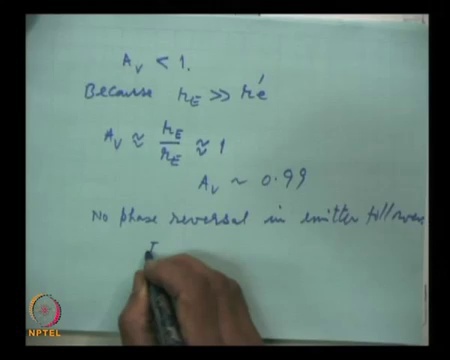 A_V < 1.
Because r_E >> r'e
A_V ≈ r_E / r_E ≈ 1
A_V ~ 0.99
No phase reversal in emitter follower
I
NPTEL